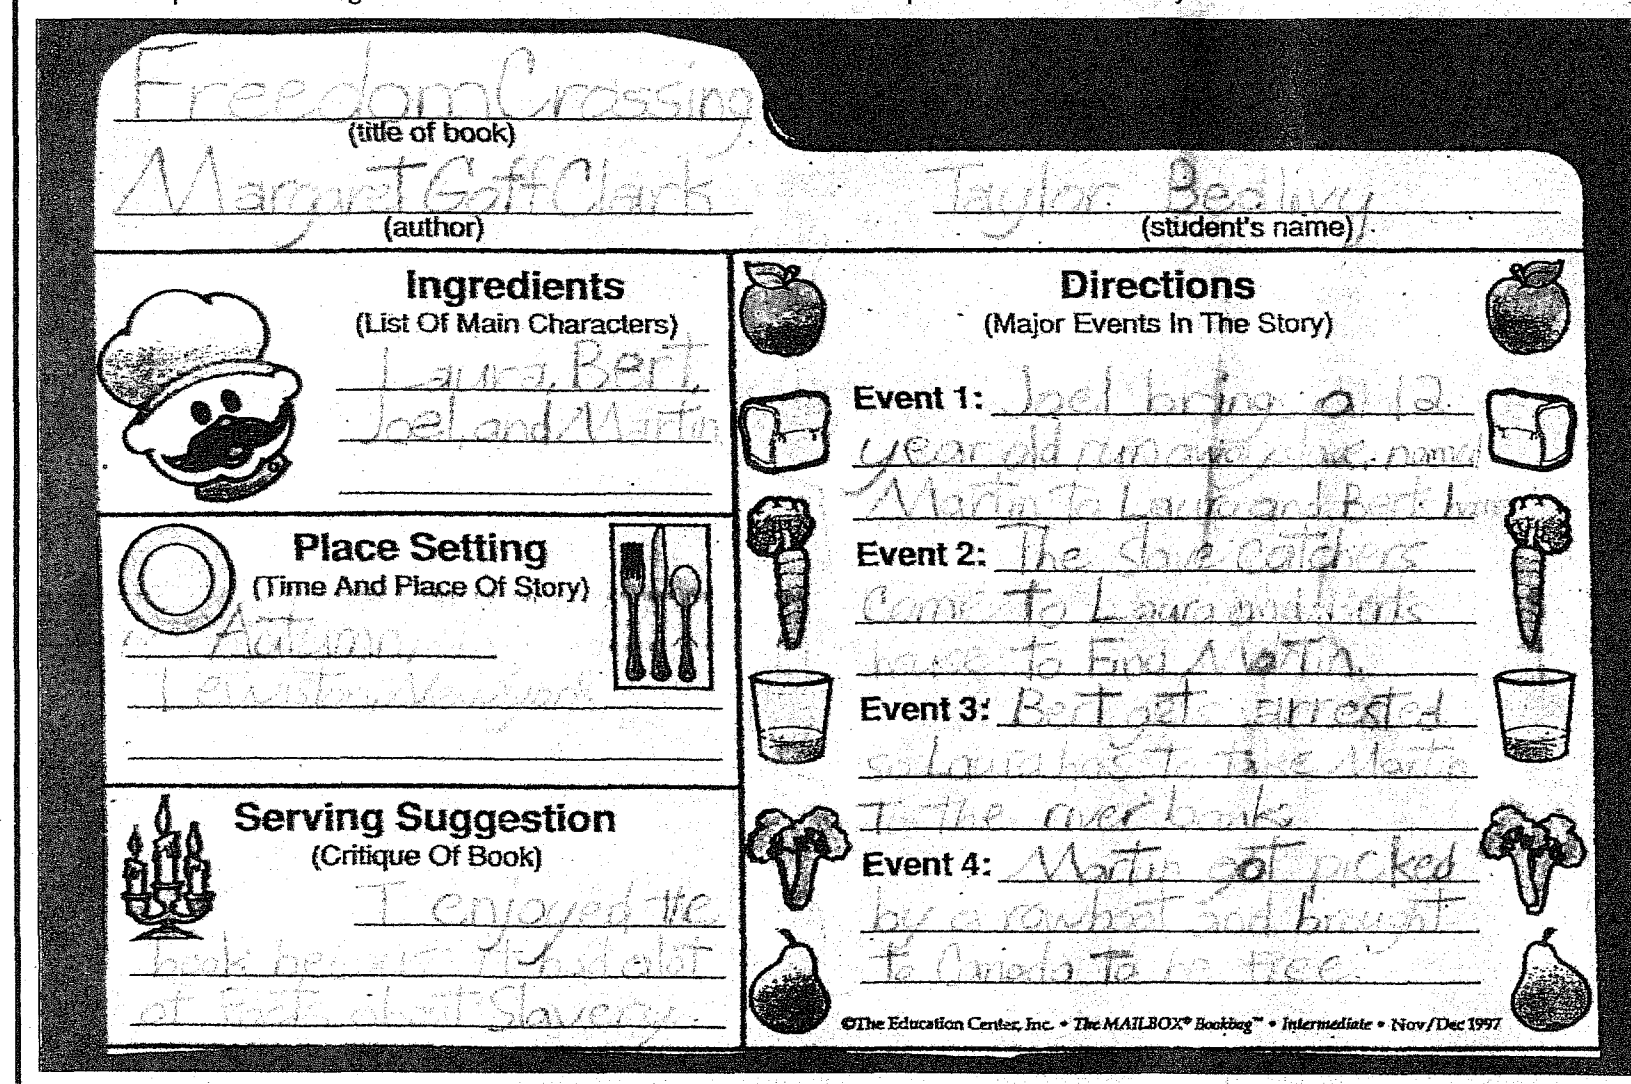 Freedom Crossing
(title of book)
Margaret Goff Clark
(author)
Taylor
(student's name)
Ingredients
(List Of Main Characters)
Laura, Bert,
Joel and Martin
Place Setting
(Time And Place Of Story)
Autumn,
Lewiston, New york
Serving Suggestion
(Critique Of Book)
I enjoyed the
book because it had alot
of facts about Slavery.
Directions
(Major Events In The Story)
Event 1: Joel bring a 12
year old run away slave named
Martin to Laura and Bert
Event 2: The slave catchers
Come to Laura and Berts
house to Find Martin.
Event 3: Bert gets arrested
so Laura has to take Martin
To the river banks
Event 4: Martin got picked
by a rowboat and brought
to Canada To be free.
©The Education Center, Inc. • The MAILBOX® Bookbag™ • Intermediate • Nov/Dec 1997